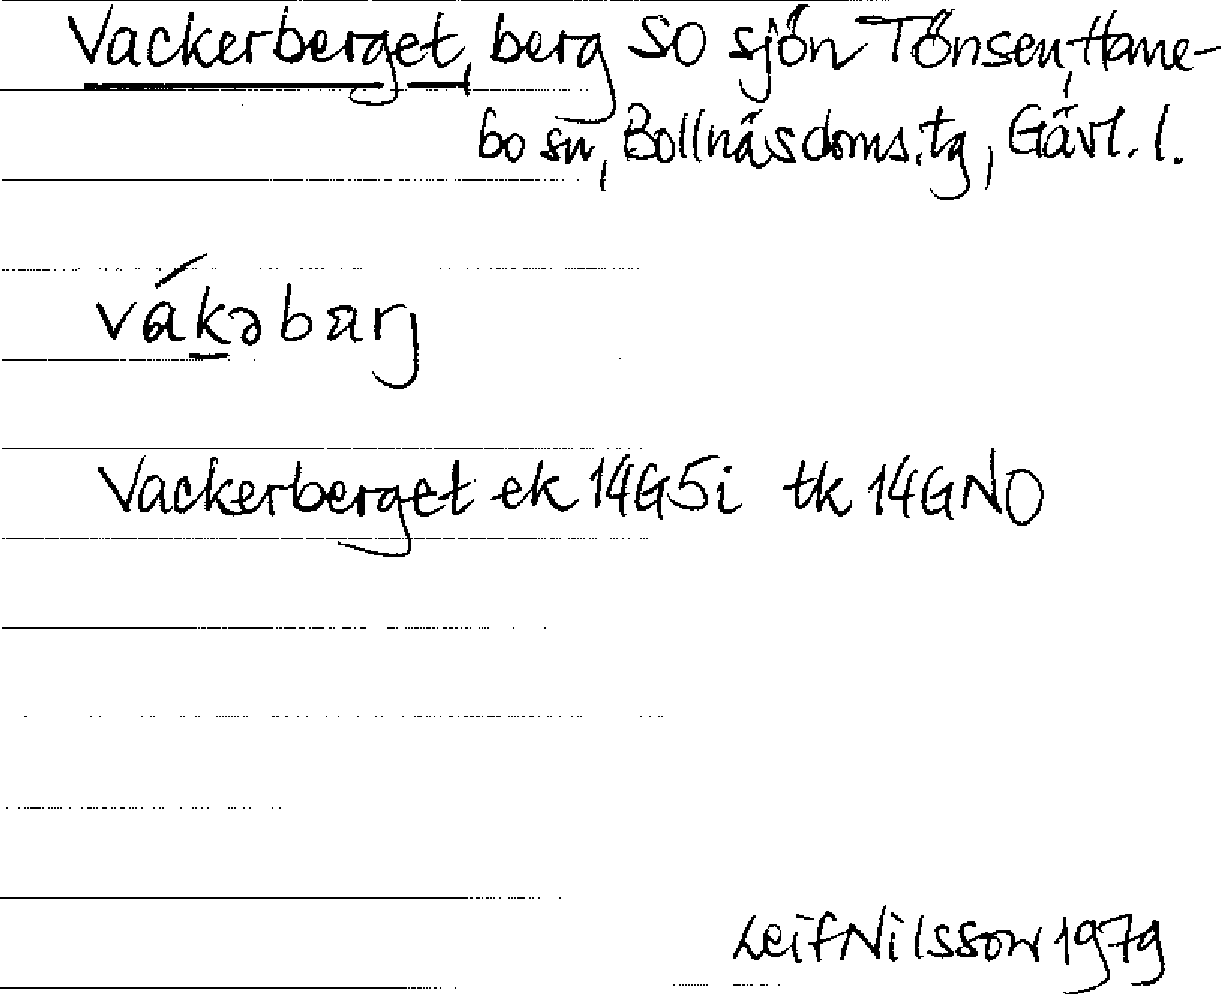 Vackerberget, berg SO sjön Tönsen, Hane-
bo sn, Bollnäs doms.tg, Gävl. l.
vákəbærj
Vackerberget ek 14G5i tk 14GNO
Leif Nilsson 1979